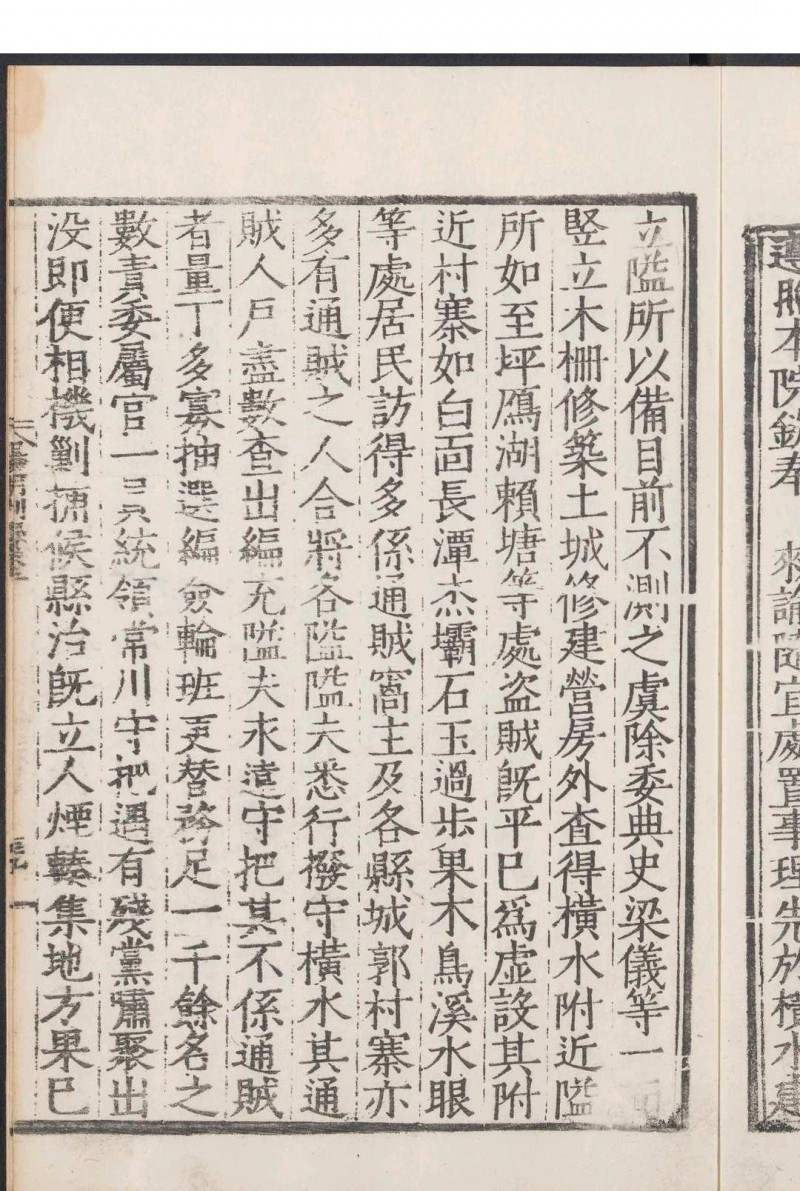 遵照本院欽奉　來諭隨宜處置事理先於橫水建
立隘所以備目前不測之虞除委典史梁儀等一面
竪立木柵修築土城修建營房外查得橫水附近隘
所如至坪鴈湖賴塘等處盜賊既平已爲虛設其附
近村寨如白面長潭杰壩石玉過步果木鳥溪水眼
等處居民訪得多係通賊窩主及各縣城郭村寨亦
多有通賊之人合將各隘隘夫悉行撥守橫水其通
賊人戶盡數查出編充隘夫永遠守把其不係通賊
者量丁多寡抽選編僉輪班更替務足一千餘名之
數責委屬官一員統領常川守把遇有殘黨嘯聚出
没即便相機剿捕候縣治既立人煙輳集地方果已